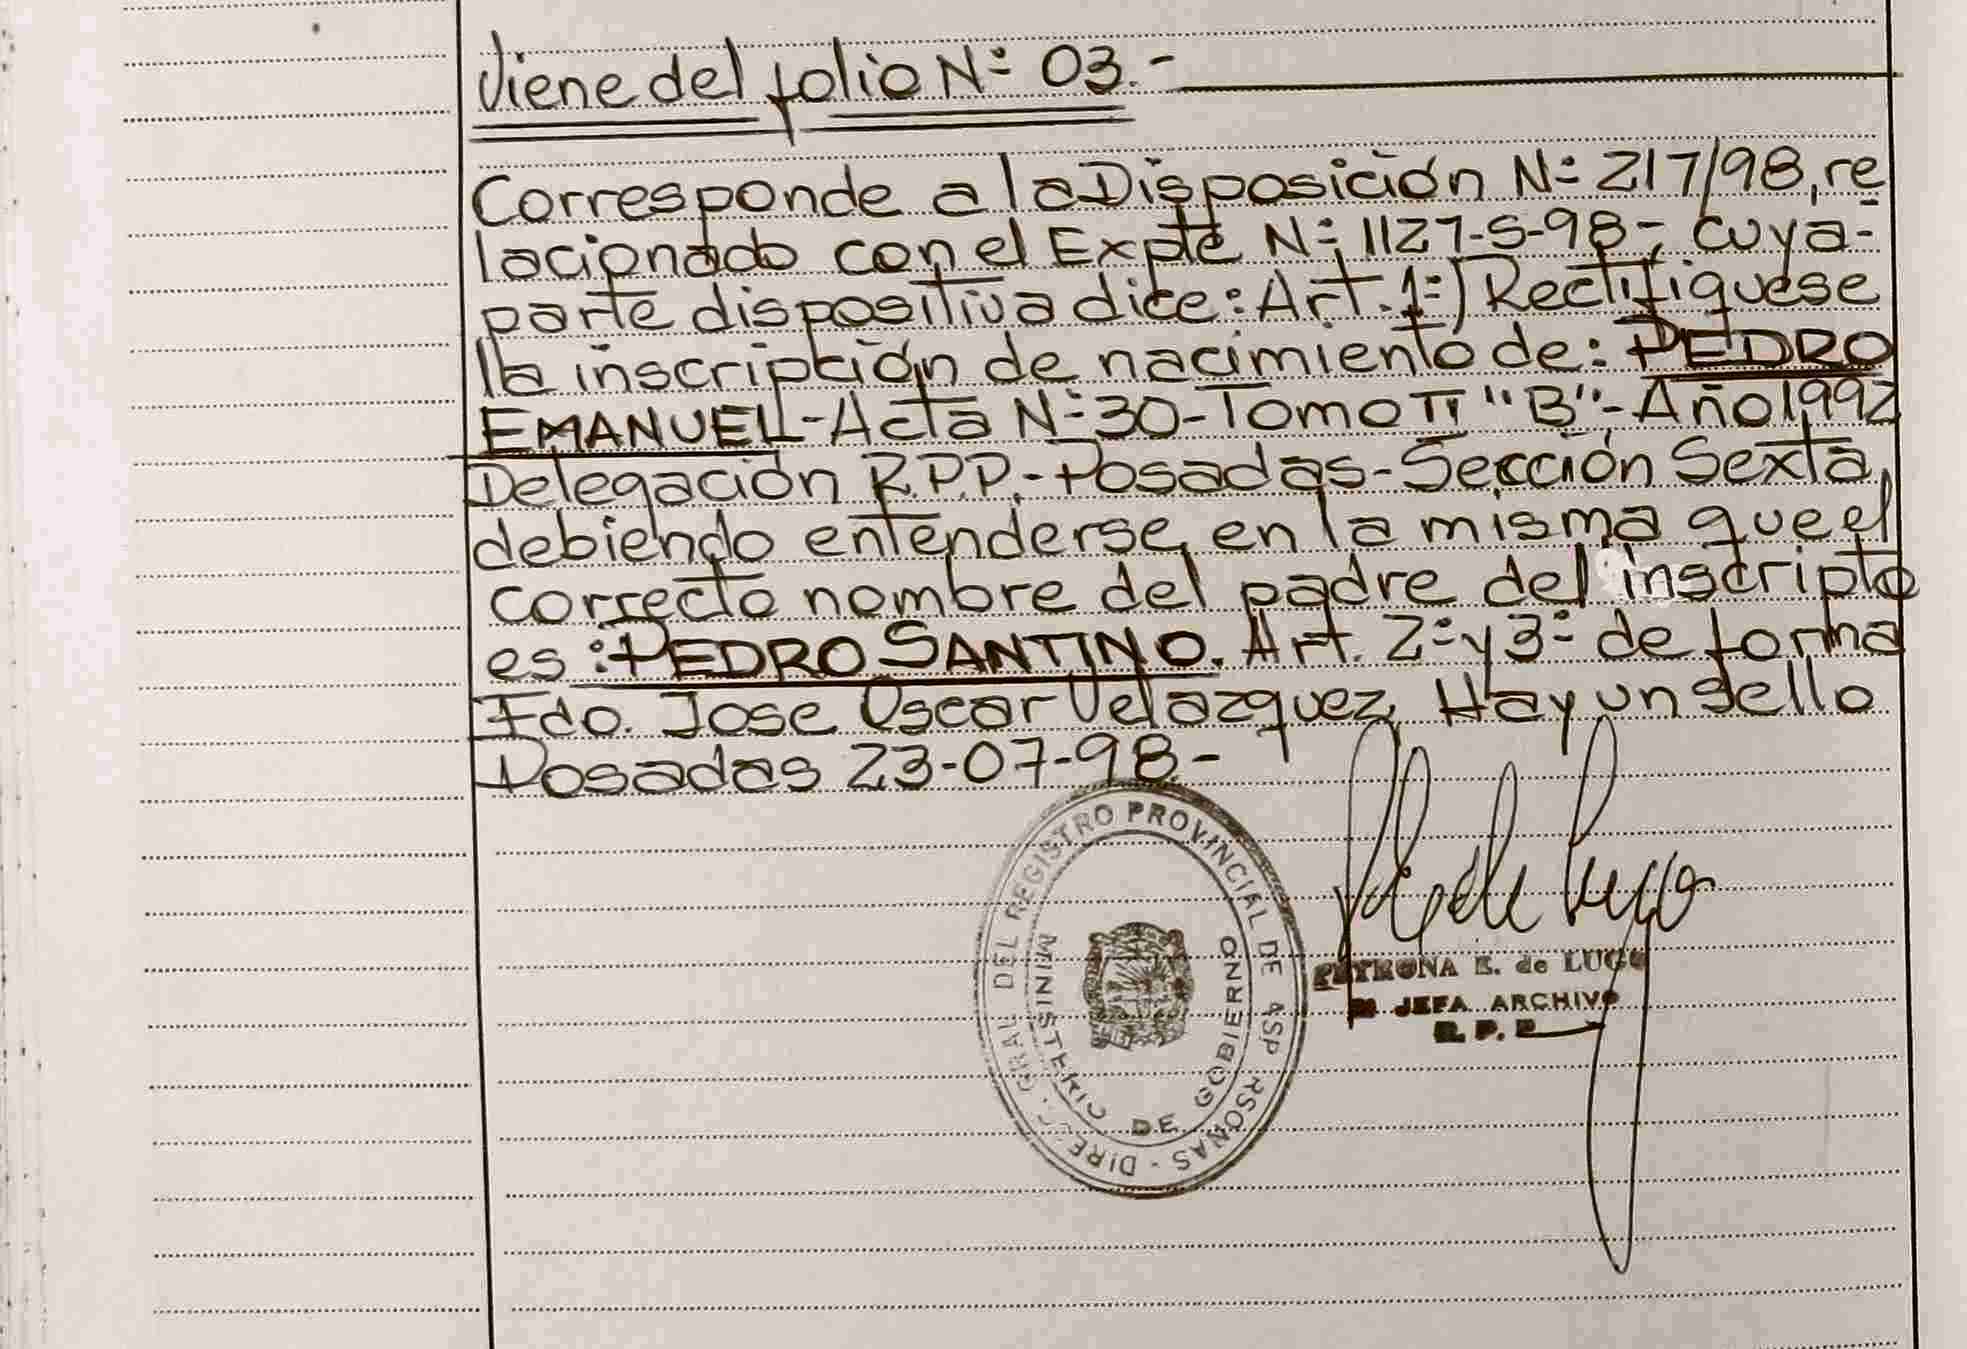 Viene del folio Nº 03.-
Corresponde a la Disposición Nº 217/98, re
lacionado con el Expte Nº 1127-S-98-, cuya-
parte dispositiva dice: Art. 1º) Rectifiquese
la inscripción de nacimiento de: PEDRO
EMANUEL-Acta Nº 30-Tomo II "B"- Año 1992
Delegación R.P.P.-Posadas-Sección Sexta,
debiendo entenderse en la misma que el
correcto nombre del padre del inscripto
es: PEDRO SANTINO. Art. 2º y 3º de forma
Fdo. Jose Oscar Velazquez, Hay un sello
Posadas 23-07-98.-
DIRECC. GRAL DEL REGISTRO PROVINCIAL DE LAS PERSONAS -
MINISTERIO DE GOBIERNO
PETRONA E. de LUGO
JEFA ARCHIVO
R. P. P.